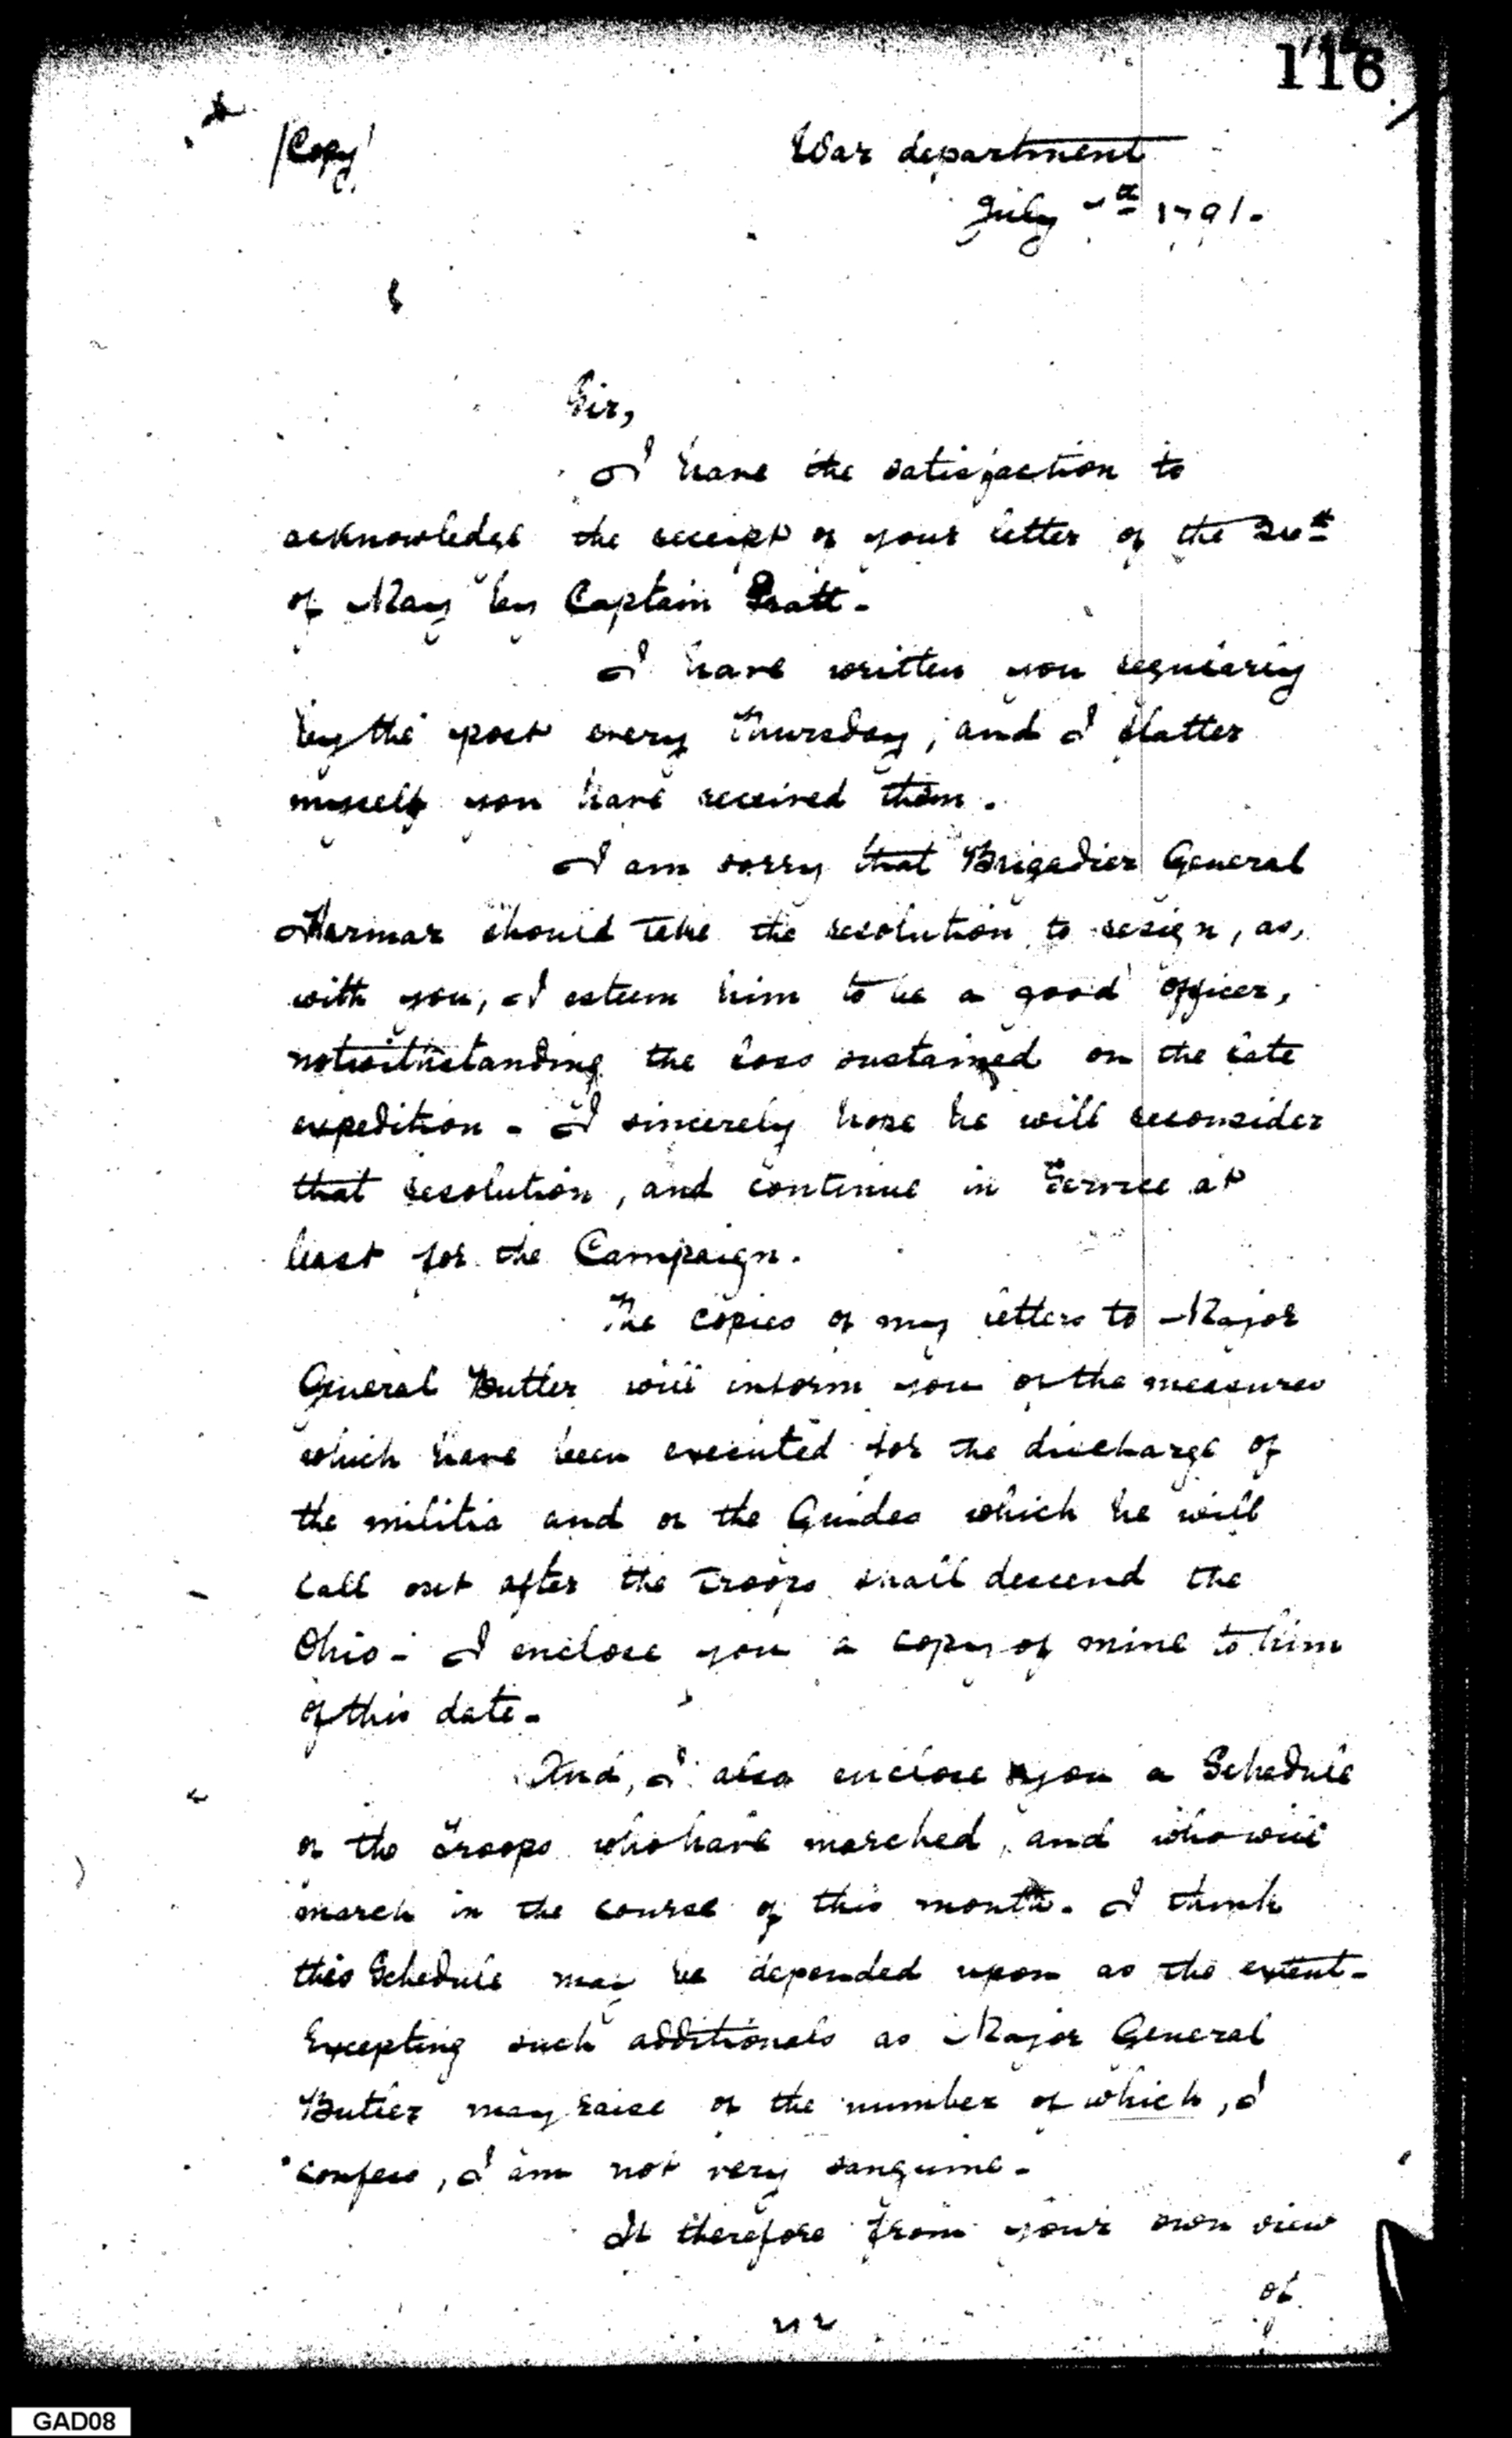 116
/Copy/
War department
July 7th 1791.
Sir,
I have the satisfaction to
acknowledge the receipt of your letter of the
of May by Captain Pratt.
I have written you regularly
by the post every Thursday, and I flatter
myself you have received them.
I am sorry that Brigadier General
Harmar should take the resolution to resign, as,
with you, I esteem him to be a good officer,
notwithstanding the loss sustained on the late
expedition - I sincerely hope he will reconsider
that resolution, and continue in Service at
least for the Campaign.
The copies of my letters to Major
General Butler will inform you of the measures
which have been executed for the discharge of
the militia and of the Guides which he will
call out after the troops shall descend the
Ohio - I enclose you a copy of mine to him
of this date -
And, I also enclose you a Schedule
of the troops who have marched, and who will
march in the course of this month. I think
this Schedule may be depended upon as the extent -
Excepting such additionals as Major General
Butler may raise of the number of which, I
confess, I am not very sanguine -
If therefore from your own view
of
GAD08